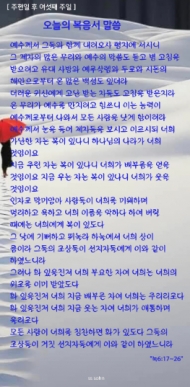 [ 주현절 후 여섯째 주일 ]
오늘의 복음서 말씀
예수께서 그들과 함께 내려오사 평지에 서시니
그 제자의 많은 무리와 예수의 말씀도 듣고 병 고침을
받으려고 유대 사방과 예루살렘과 두로와 시돈의
해안으로부터 온 많은 백성도 있더라
더러운 귀신에게 고난 받는 자들도 고침을 받은지라
온 무리가 예수를 만지려고 힘쓰니 이는 능력이
예수께로부터 나와서 모든 사람을 낫게 함이러라
예수께서 눈을 들어 제자들을 보시고 이르시되 너희
가난한 자는 복이 있나니 하나님의 나라가 너희
것임이요
지금 주린 자는 복이 있나니 너희가 배부름을 얻을
것임이요 지금 우는 자는 복이 있나니 너희가 웃을
것임이요
인자로 말미암아 사람들이 너희를 미워하며
멀리하고 욕하고 너희 이름을 악하다 하여 버릴
때에는 너희에게 복이 있도다
그 날에 기뻐하고 뛰놀라 하늘에서 너희 상이
큼이라 그들의 조상들이 선지자들에게 이와 같이
하였느니라
그러나 화 있을진저 너희 부요한 자여 너희는 너희의
위로를 이미 받았도다
화 있을진저 너희 지금 배부른 자여 너희는 주리리로다
화 있을진저 너희 지금 웃는 자여 너희가 애통하며
울리로다
모든 사람이 너희를 칭찬하면 화가 있도다 그들의
조상들이 거짓 선지자들에게 이와 같이 하였느니라
"눅6:17~26"